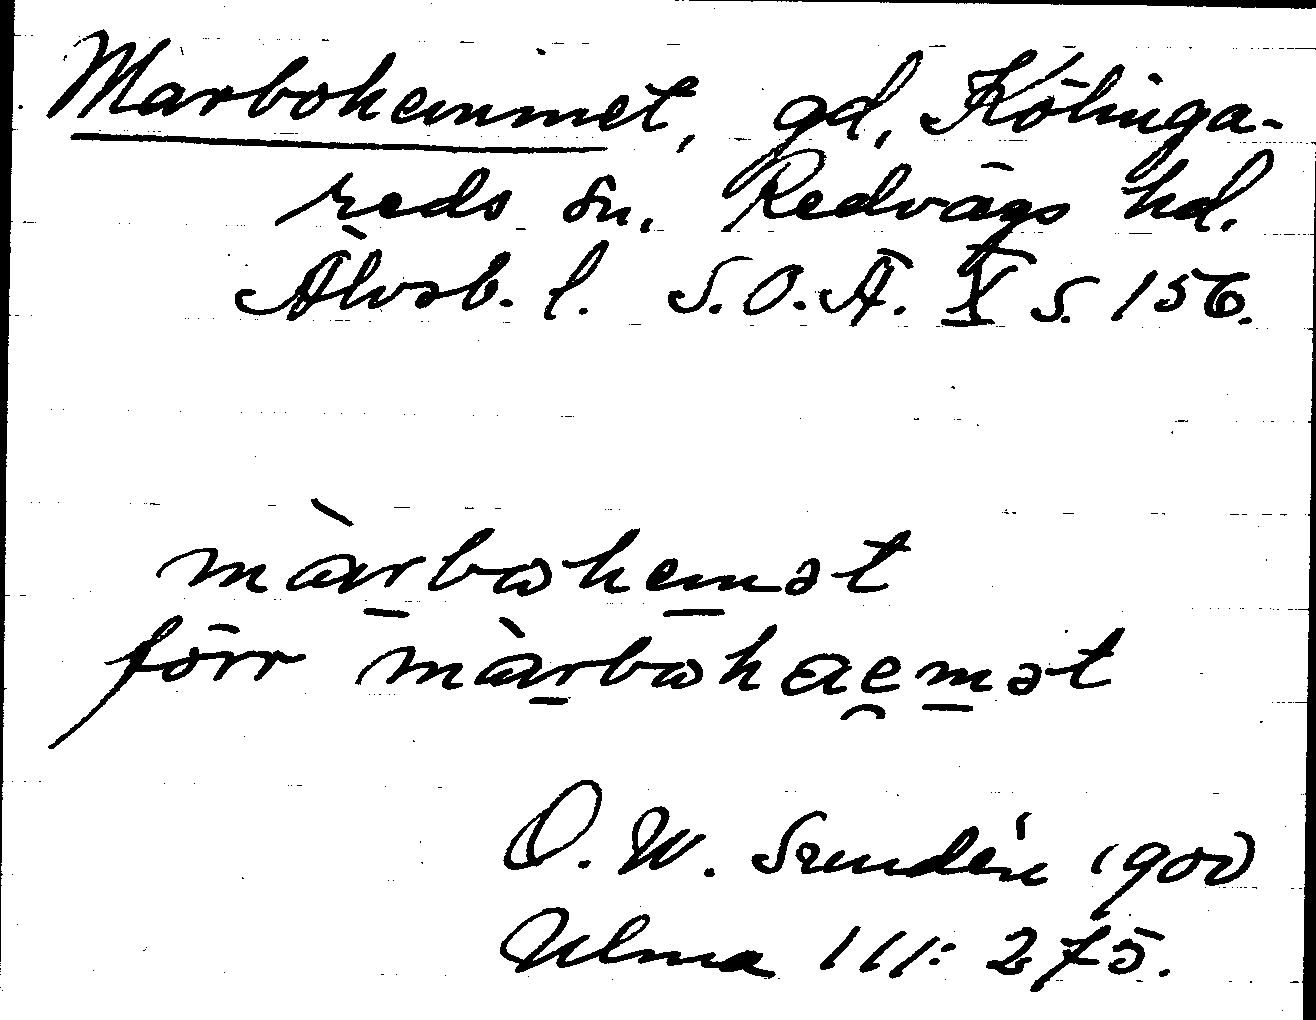 Marbohemmet, gd, Kölinga-
reds sn. Redvägs hd.
Älvsb. l. S.O.Ä. X s. 156.
màrbωhemət
förr màrbωhaemət
O. W. Sundén 1900
Ulma 111:275.